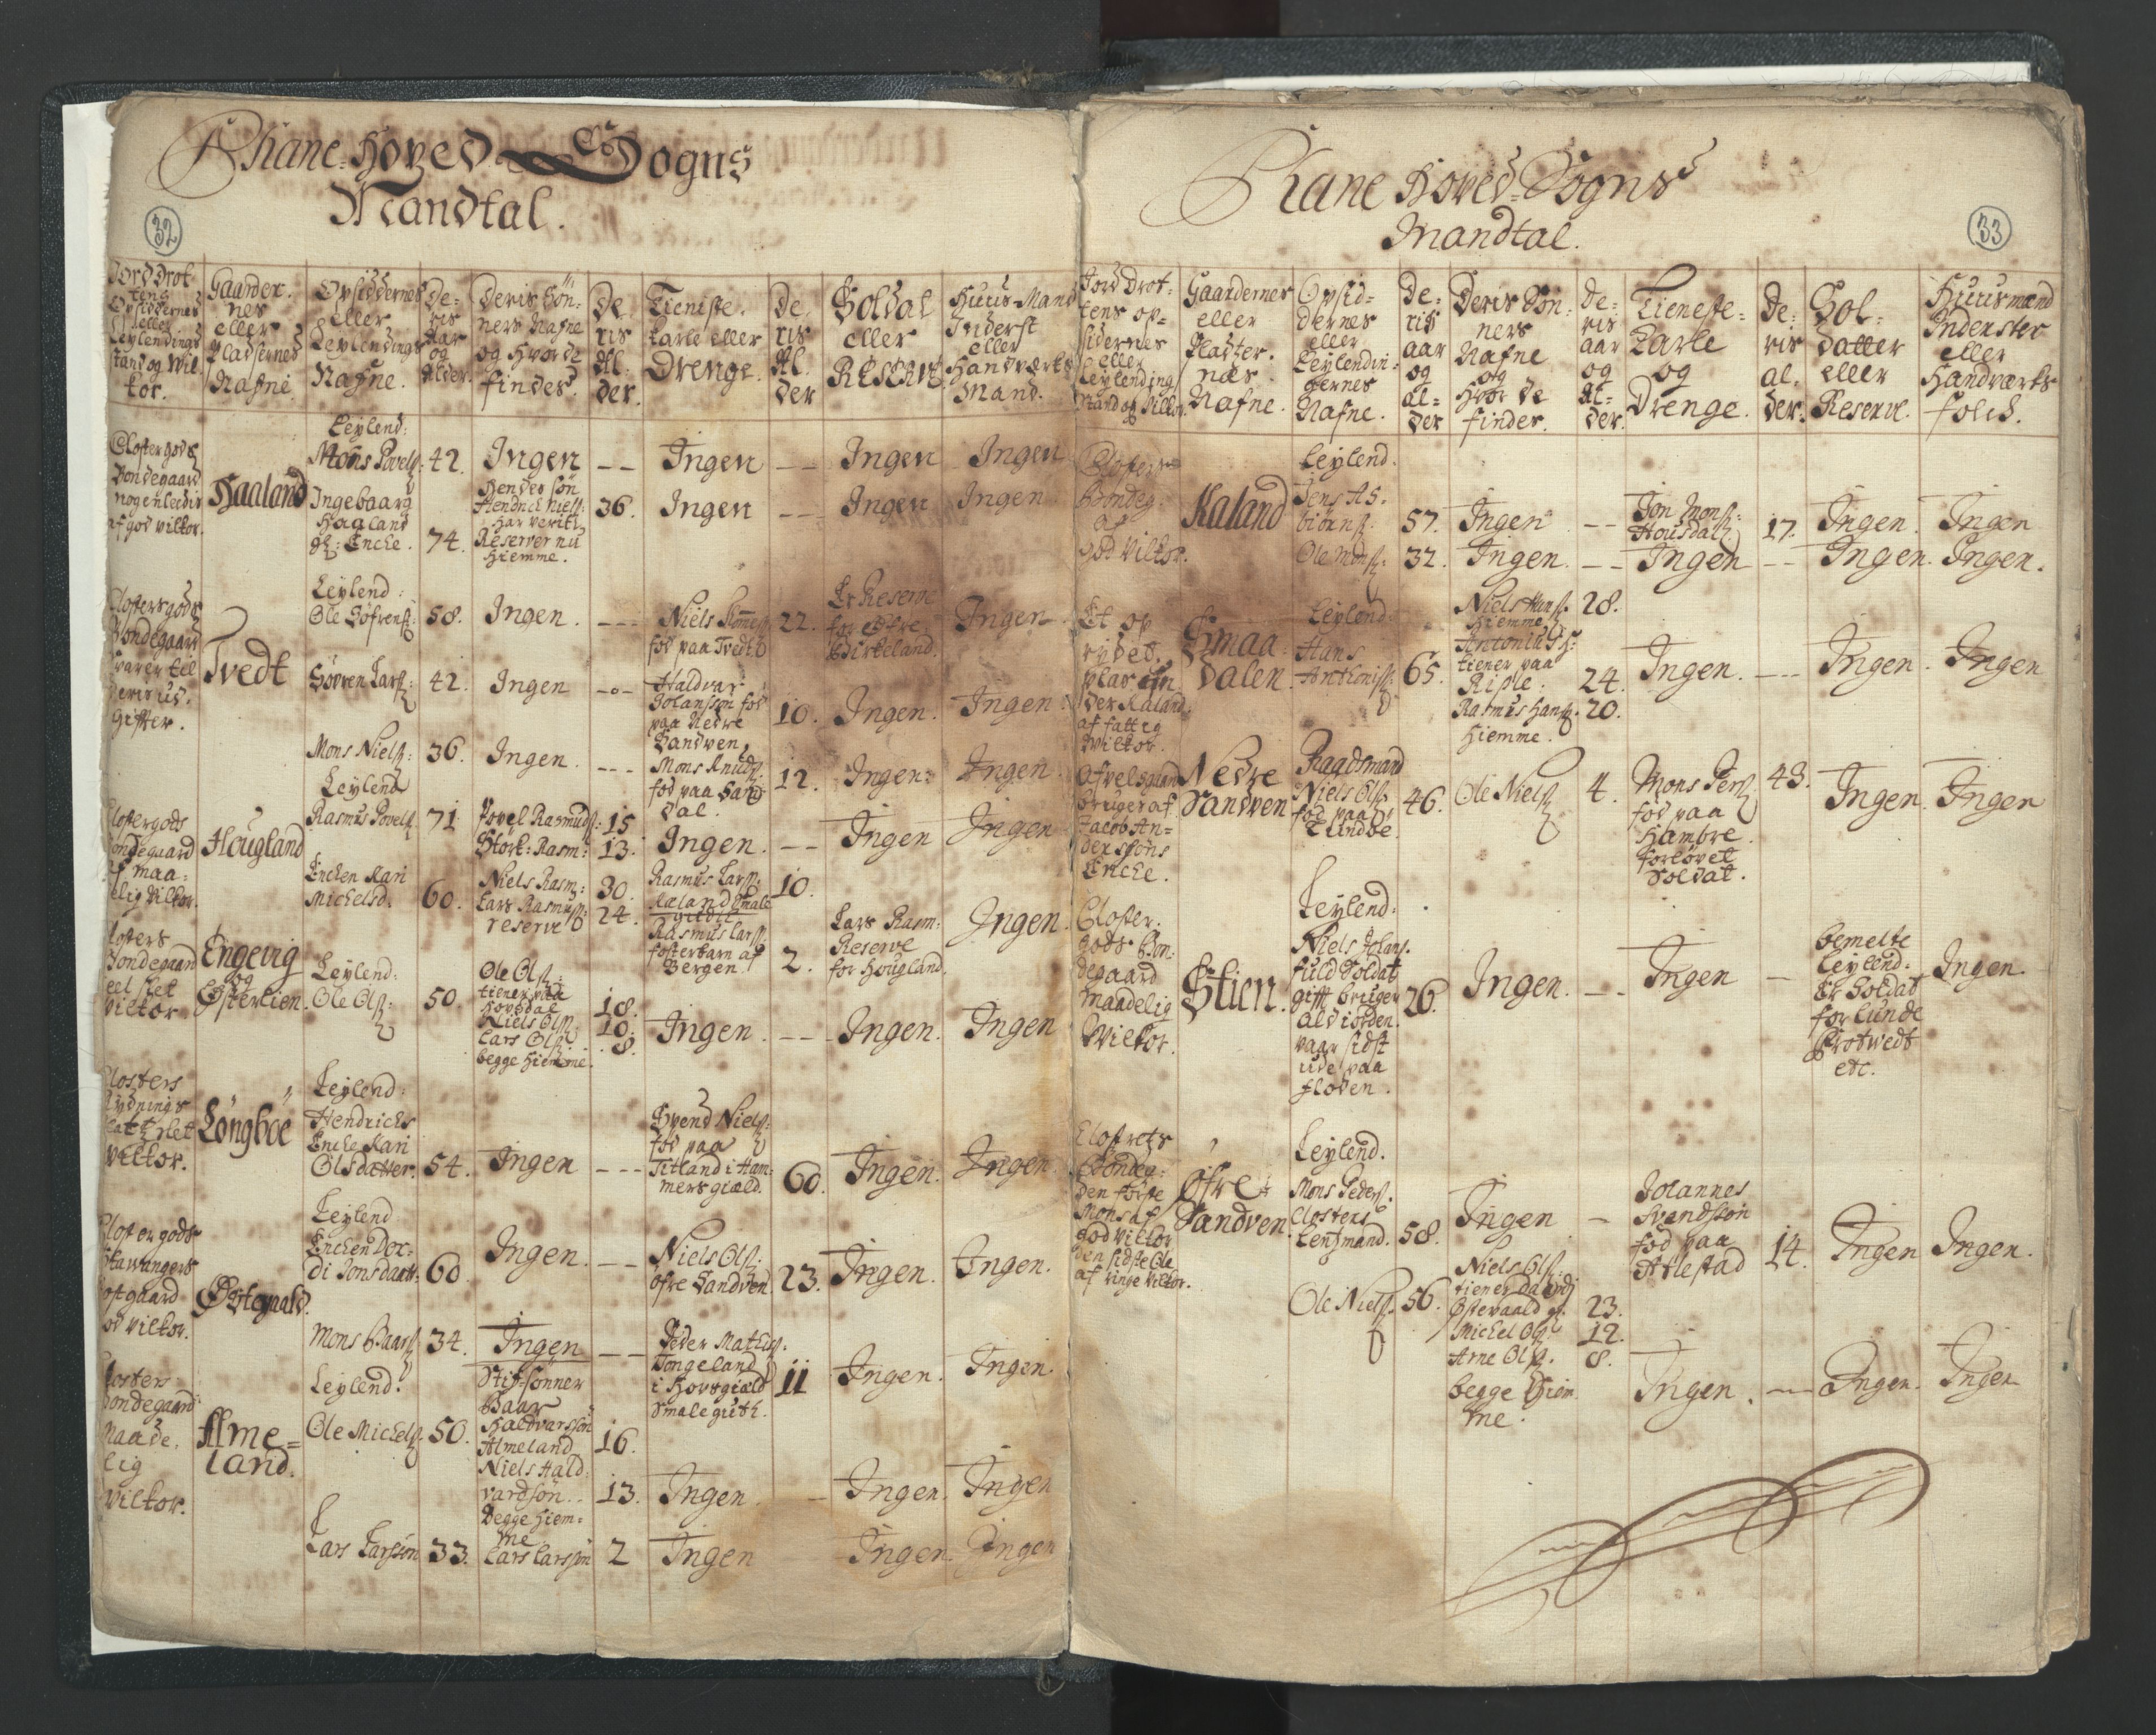 Phane-Hoved Sogns
Mandtal.
32
Jord Drot-
tens
Opsiddernes
eller
Leylendings
stand og Vil-
kor.
Gaarder-
nes
eller
Pladsernes
Nafne
Opsiddernes
eller
Leylendings
Nafne.
De-
ris
Aar
og
Alder.
Deris Søn-
ners Nafne
og hvor de
findes.
De
ris
Al-
der.
Tieniste-
Karle eller
Drenge.
De
ris
Al-
der
Soldat
eller
Reserve
Huus-Mand
Inderst
eller
Handværks
Mand.
Closter gods
Bondegaard
nogenledis
af god vilkor.
Haaland
Leylend:
Mons Povels: 42. Ingen -- Ingen -- Ingen Ingen
Ingebaarg
Haaland
gl: Encke. 74.
Hendes søn
Hendrich Niels:
Har verit
Reserve nu
Hiemme.
36. Ingen -- Ingen Ingen
Clostergods
Bondegaard
svarer til
deris ud-
gifter.
Tvedt
Leylend:
Ole Søfrens: 58. Ingen. ---
Niels
fød paa Tvedt
22.
Er Reserve
for Øfre
Birkeland.
Ingen
Søvren Lars: 42. Ingen --
Haldvar
Johansøn fød
paa Nedre
Sandven
10. Ingen. Ingen
Mons Niels: 36. Ingen. ---
Mons Knuds:
fød paa Sand
dal.
12. Ingen: Ingen
Clostergods
Bondegaard
af maa-
elig vilkor.
Hougland
Leylend
Rasmus Povels 71
Povel Rasmuds: 15
Stork: Rasm: 13.
Ingen. -- Ingen Ingen
Encken Kari
Michelsd. 60.
Niels Rasm: 30.
Lars Rasmus:
reserve
24.
Rasmus Lars: 10.
Kaland Smale
gutte
Rasmus Lars:
fosterbarn af
Bergen.
2.
Lars Rasm:
Reserve
for Hougland.
Ingen.
Closters
Bondegaard
eel slet
vilkor
Engevig
og
Østerlien.
Leylend:
Ole Ols: 50.
Ole Ols:
tiener paa
Hovsdal 18.
Niels Ols: 10.
Lars Ols: 8.
begge hiemme.
Ingen. --- Ingen. Ingen
Closters
Rydnings
slet
vilkor.
Longboe
Leylend:
Hendrichs
Encke Kari
Olsdatter. 54. Ingen ---
Svend Niels:
fød paa
Titland i Ham-
mers giæld.
60. Ingen. Ingen
Closter gods
Stavangers
gaard
god vilkor.
Østevaald.
Leylend
Encken Dor-
di Jonsdaat: 60 Ingen. --
Niels Ols:
øfre Sandven. 23. Ingen. Ingen.
Mons Baars 34. Ingen --
Peder Mathis:
Tongeland
i Hovsgiæld
Smalegutt.
11 Ingen. Ingen.
Closters
Bondegaard
Maade-
lig
Vilkor.
Alme-
land.
Leylend.
Ole Michels: 50.
Stif-sønner
Baar
Haldvarssøn
Almeland 16.
Niels Hald-
vardsøn.. 13.
Begge hiem-
me
Ingen. - Ingen. Ingen
Lars Larssøn 33. Lars Larssøn 2 Ingen Ingen. Ingen
Phane Hoved-Sogns
Mandtal.
33
Jord Drot-
tens op-
sidernes
eller
Leylending
stand og Vilkor.
Gaardernes
eller
Pladser-
nes
Nafne.
Opsid-
dernes
eller
Leylendin-
gernes
Nafne.
De-
ris
aar
og
al-
der
Deris Søn-
ners
Nafne
og
Hvor de
findes.
De-
ris
aar
og
Al-
der.
Tieneste-
Karle
og
Drenge.
De-
ris
al-
der.
Sol-
datter
eller
Reserve.
Huusmænd
Inderster
eller
Handværks
folck.
Closters
Bondeg.
af
god vilkor.
Kaland
Leylend.
Jens As-
biørns: 57. Ingen --
Jon Mons:
Housdal: 17. Ingen. Ingen
Ole Mons: 32. Ingen. -- Ingen -- Ingen. Ingen.
Et op
rydet
plads un-
der Kaland
af fattig
Vilkor.
Smaa-
dalen.
Leylend:
Hans
Anthonis: 65.
Niels Hans: 28.
hiemme
Antonius H:
tiener paa
Riple: 24.
Rasmus Hans: 20.
Hiemme.
Ingen. --- Ingen. Ingen
Afvelsgaard
bruges af
Jacob An-
derssøns
Encke.
Nedre
Sandven
Raadsmand
Niels Ols:
fød paa
Lundbe
46. Ole Niels 4.
Mons Pers:
fød paa
Hambre
forløvet
Soldat.
43. Ingen. Ingen
Closter-
gods Bon-
degaard
maadelig
Vilkor.
Stien.
Leylend:
Niels Johans:
fuld Soldat
gifft bruger
ald jorden.
vaar sidst
ude paa
floden.
26. Ingen. -- Ingen -
bemelte
Leylend:
Er Soldat
for Lunde
Protwedt
etc.
Ingen.
Closters
Bondeg:
den første
Mons af
god vilkor
den sidste Ole
af ringe vilkor.
Øfre-
Sandven.
Leylend.
Mons Peders:
Closters
Lensmand. 58. Ingen -
Johannes
Svendssøn
fød paa
Atlestad
14. Ingen Ingen.
Ole Niels: 56.
Niels Ols:
tiener Dordi
Østevaald gl. 23.
Michel Ols: 12.
Arne Ols. 8.
begge Hiem-
me.
Ingen. -- Ingen. Ingen